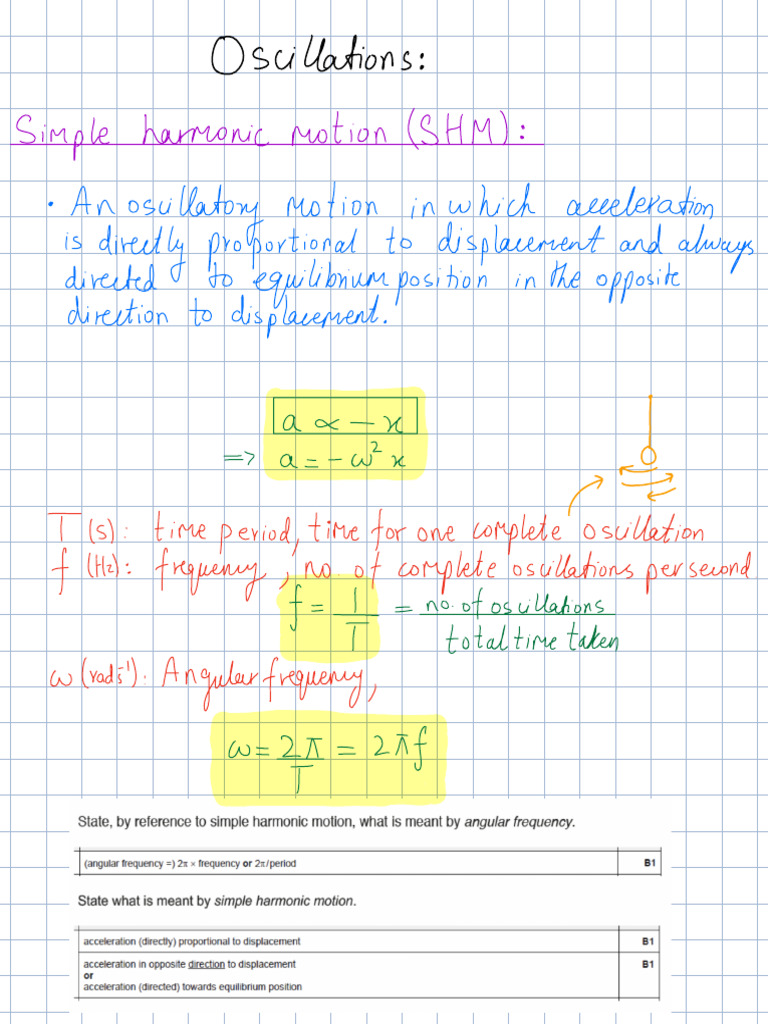 Oscillations:
Simple harmonic motion (SHM):
• An oscillatory motion in which acceleration
is directly proportional to displacement and always
directed to equilibrium position in the opposite
direction to displacement.
a ∝ - x
=> a = - ω² x
T (s): time period, time for one complete oscillation
f (Hz): frequency, no. of complete oscillations per second
f = 1/T = no. of oscillations / total time taken
ω (rads⁻¹): Angular frequency,
ω = 2π/T = 2πf
State, by reference to simple harmonic motion, what is meant by angular frequency.
(angular frequency =) 2π × frequency or 2π/period B1
State what is meant by simple harmonic motion.
acceleration (directly) proportional to displacement B1
acceleration in opposite direction to displacement B1
or
acceleration (directed) towards equilibrium position